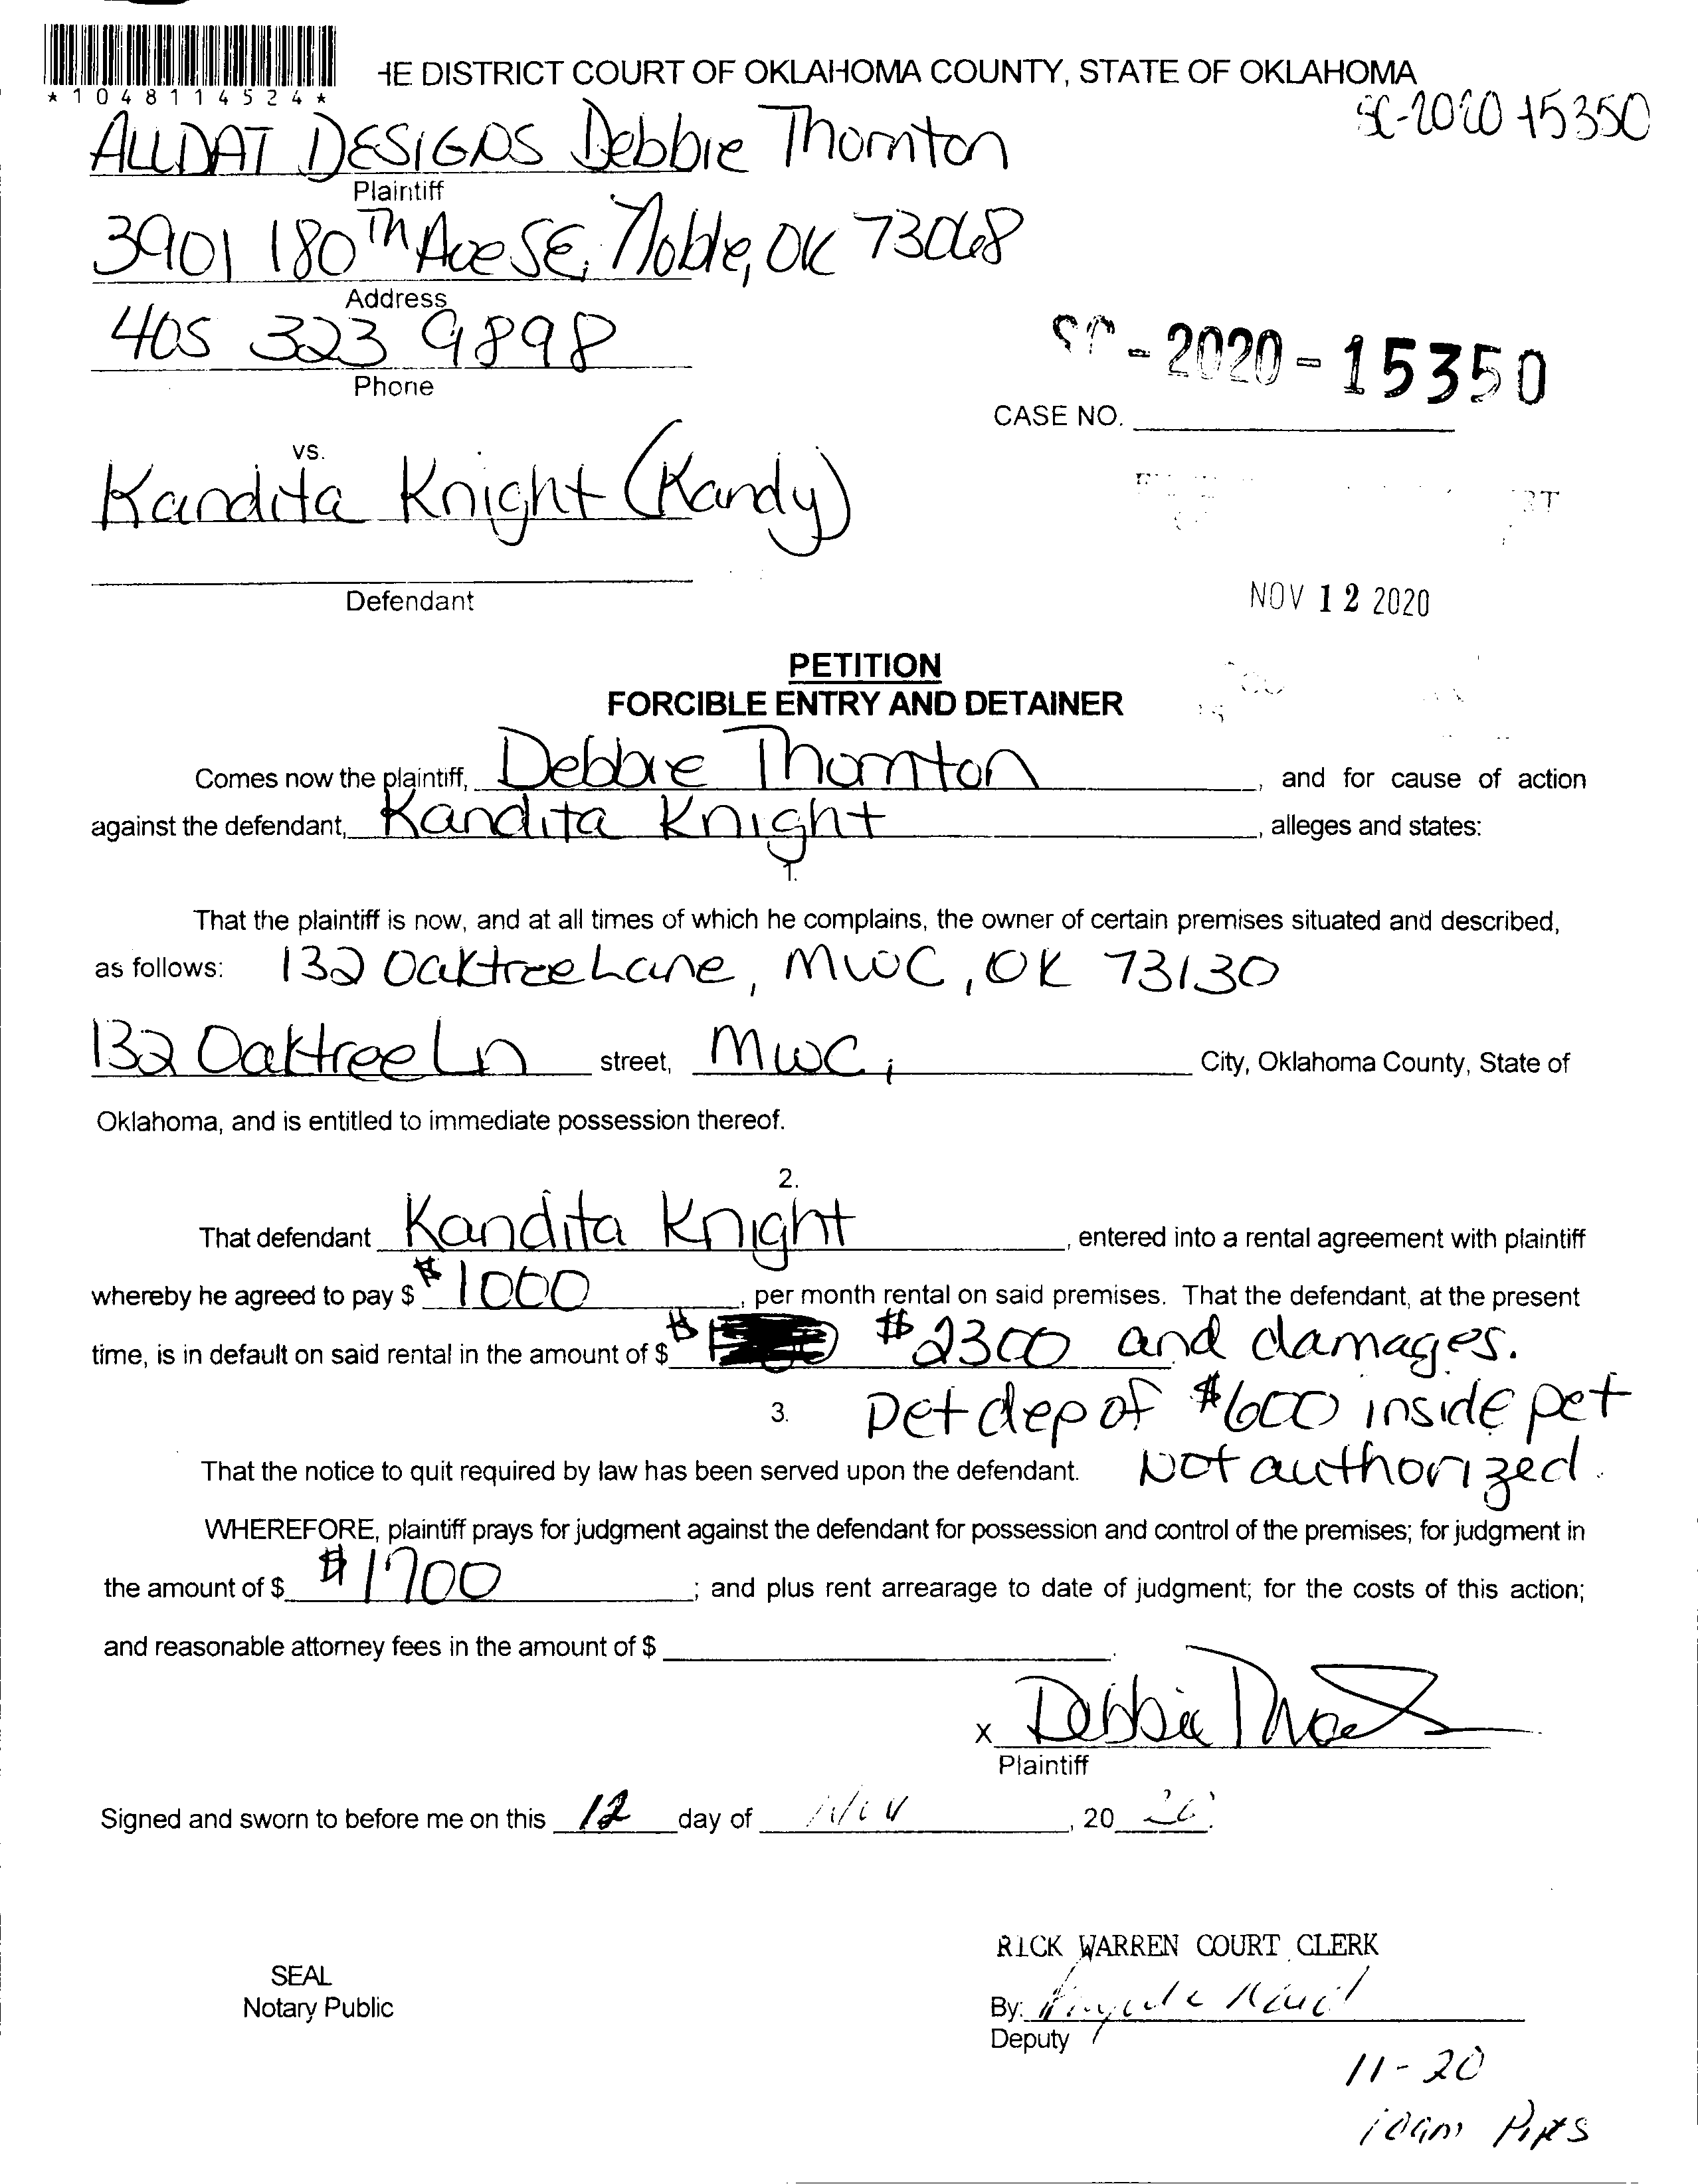 *1048114524*
HE DISTRICT COURT OF OKLAHOMA COUNTY, STATE OF OKLAHOMA
SC-2020 15350
ALLDAT DESIGNS Debbie Thornton
Plaintiff
3901 180th Ave SE, Noble, OK 73068
Address
405 323 9898
Phone
- 2020 - 15350
CASE NO.
vs.
Kandita Knight (Kandy)
Defendant
NOV 12 2020
PETITION
FORCIBLE ENTRY AND DETAINER
Comes now the plaintiff, Debbie Thornton, and for cause of action
against the defendant, Kandita Knight, alleges and states:
1.
That the plaintiff is now, and at all times of which he complains, the owner of certain premises situated and described,
as follows: 132 Oaktree Lane, MWC, OK 73130
132 Oaktree Ln street, MWC, City, Oklahoma County, State of
Oklahoma, and is entitled to immediate possession thereof.
2.
That defendant Kandita Knight, entered into a rental agreement with plaintiff
whereby he agreed to pay $ $1000, per month rental on said premises. That the defendant, at the present
time, is in default on said rental in the amount of $ $ $2300 and damages.
3. Pet dep of $600 inside pet
That the notice to quit required by law has been served upon the defendant. Not authorized.
WHEREFORE, plaintiff prays for judgment against the defendant for possession and control of the premises; for judgment in
the amount of $ $1700; and plus rent arrearage to date of judgment; for the costs of this action;
and reasonable attorney fees in the amount of $
X Debbie
Plaintiff
Signed and sworn to before me on this 12 day of Nov, 20 20.
RICK WARREN COURT CLERK
SEAL
Notary Public
By:
Deputy
11-20
10am